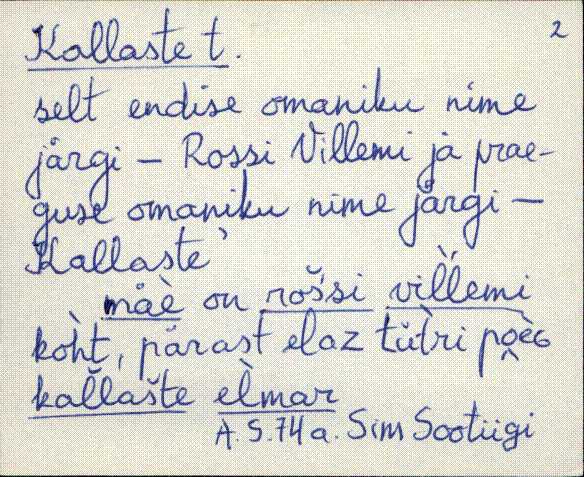 2
Kallaste t.
selt endise omaniku nime
järgi – Rossi Villemi ja prae-
guse omaniku nime järgi –
Kallaste'
mäè on roššsi villemi
kòht, pärast elaz tütri poèg
kallašte elmar
A. S. 74 a. Sim Sootiigi